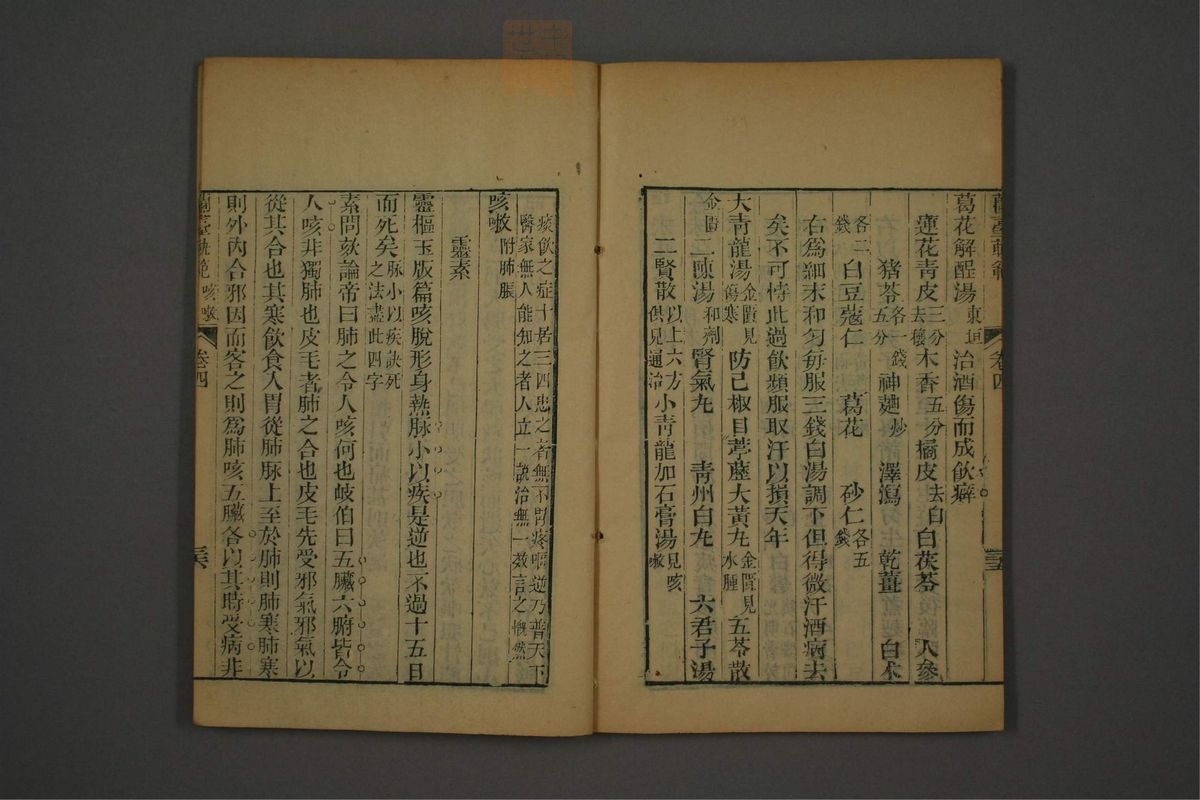 蘭臺軌範 卷四 三五
葛花解酲湯東垣 治酒傷而成飲癖
蓮花青皮三分去穰 木香五分 橘皮去白 白茯苓 人參
猪苓各一錢五分 神麯炒 澤瀉 乾薑 白朮
各二錢 白豆蔻仁 葛花 砂仁各五錢
右爲細末和匀每服三錢白湯調下但得微汗酒病去
矣不可恃此過飲頻服取汗以損天年
大青龍湯金匱見傷寒 防己椒目葶藶大黃丸金匱見水腫 五苓散
金匱 二陳湯和劑 腎氣丸 青州白丸 六君子湯
二賢散以上六方俱見通治 小青龍加石膏湯見咳嗽
痰飲之症十居三四患之者無不胸疼嘔逆乃普天下
醫家無人能知之者人立一說治無一效言之慨然
咳嗽附肺脹
靈素
靈樞玉版篇咳脫形身熱脉小以疾是逆也不過十五日
而死矣脉小以疾訣死之法盡此四字
素問欬論帝曰肺之令人咳何也岐伯曰五臟六腑皆令
人咳非獨肺也皮毛者肺之合也皮毛先受邪氣邪氣以
從其合也其寒飲食入胃從肺脉上至於肺則肺寒肺寒
則外內合邪因而客之則爲肺咳五臟各以其時受病非
蘭臺軌範 咳嗽 卷四 三六